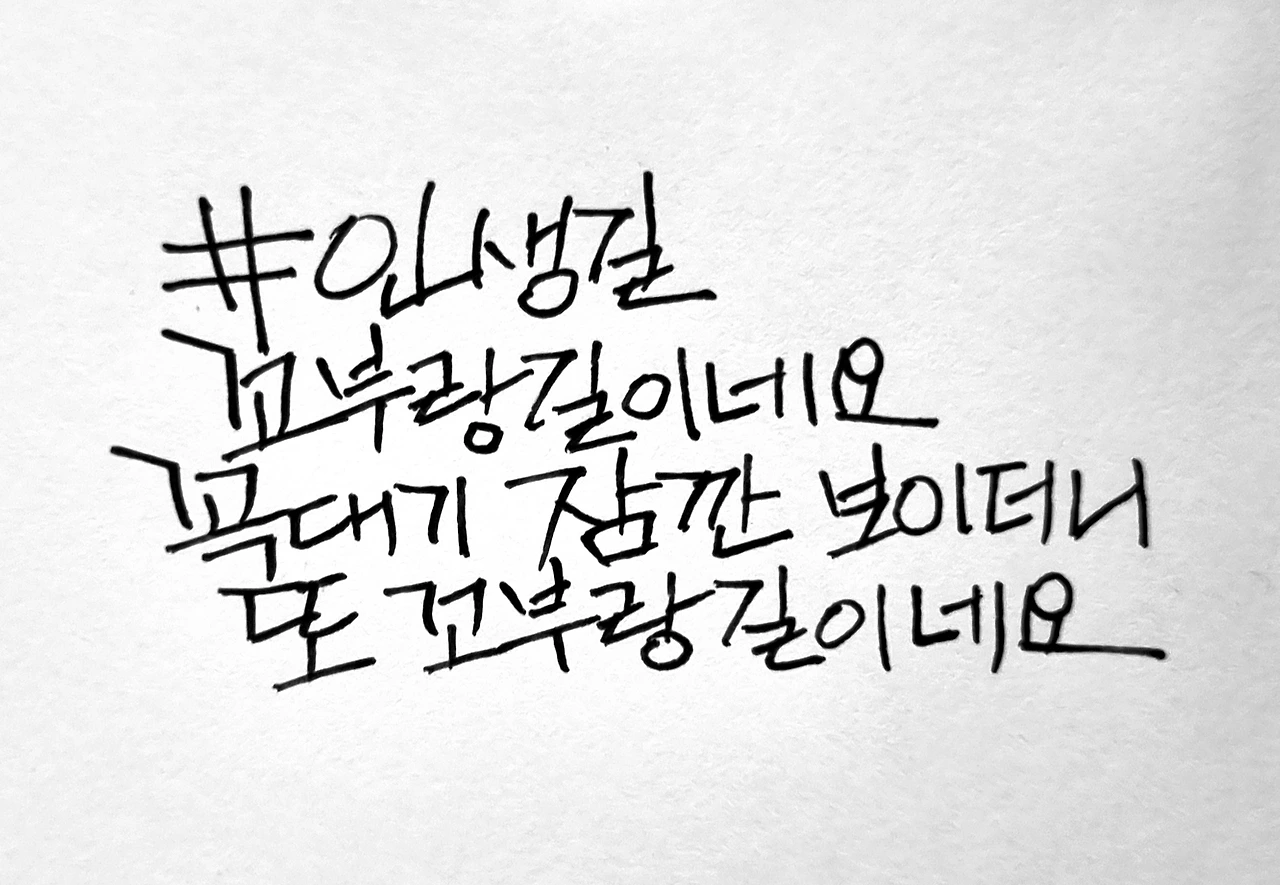 #인생길
꼬부랑길이네요
꼭대기 잠깐 보이더니
또 꼬부랑길이네요